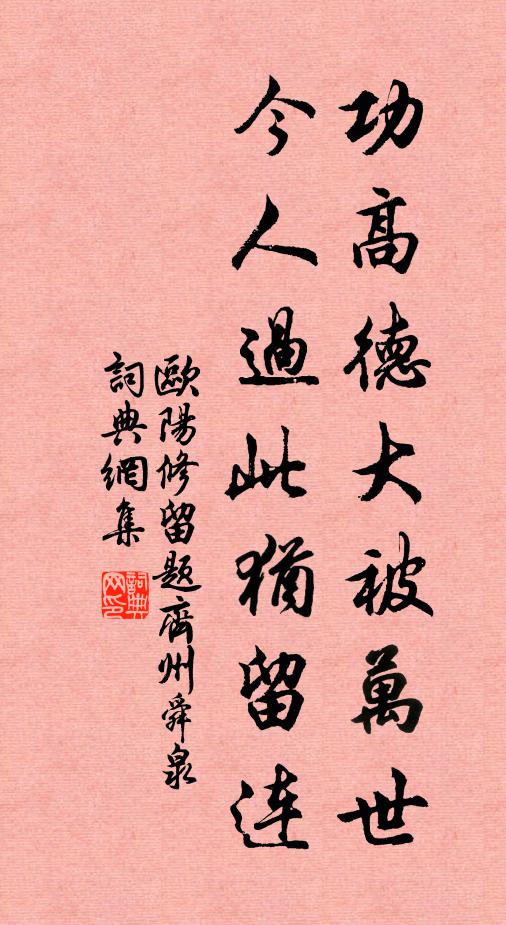 功高德大被萬世
今人過此猶留連
歐陽修留題齊州舜泉
詞典網集
詞典網印